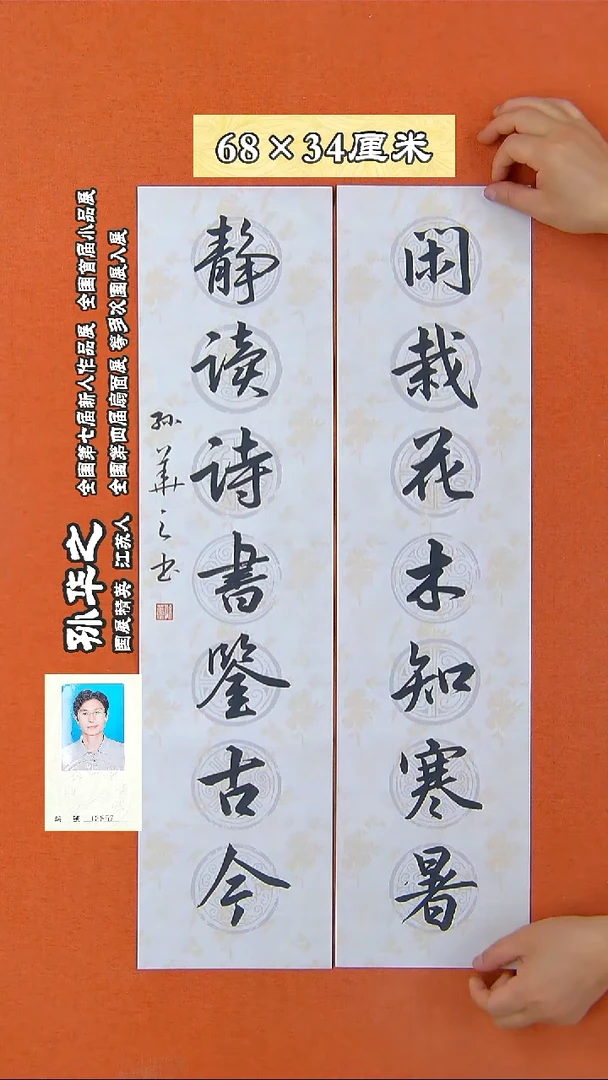 68×34厘米
闲栽花木知寒暑
静读诗書鑒古今
孙華之书
孙华之
国展精英 江苏人
全国第七届新人作品展 全国首届小品展
全国第四届扇面展 等多次国展入展